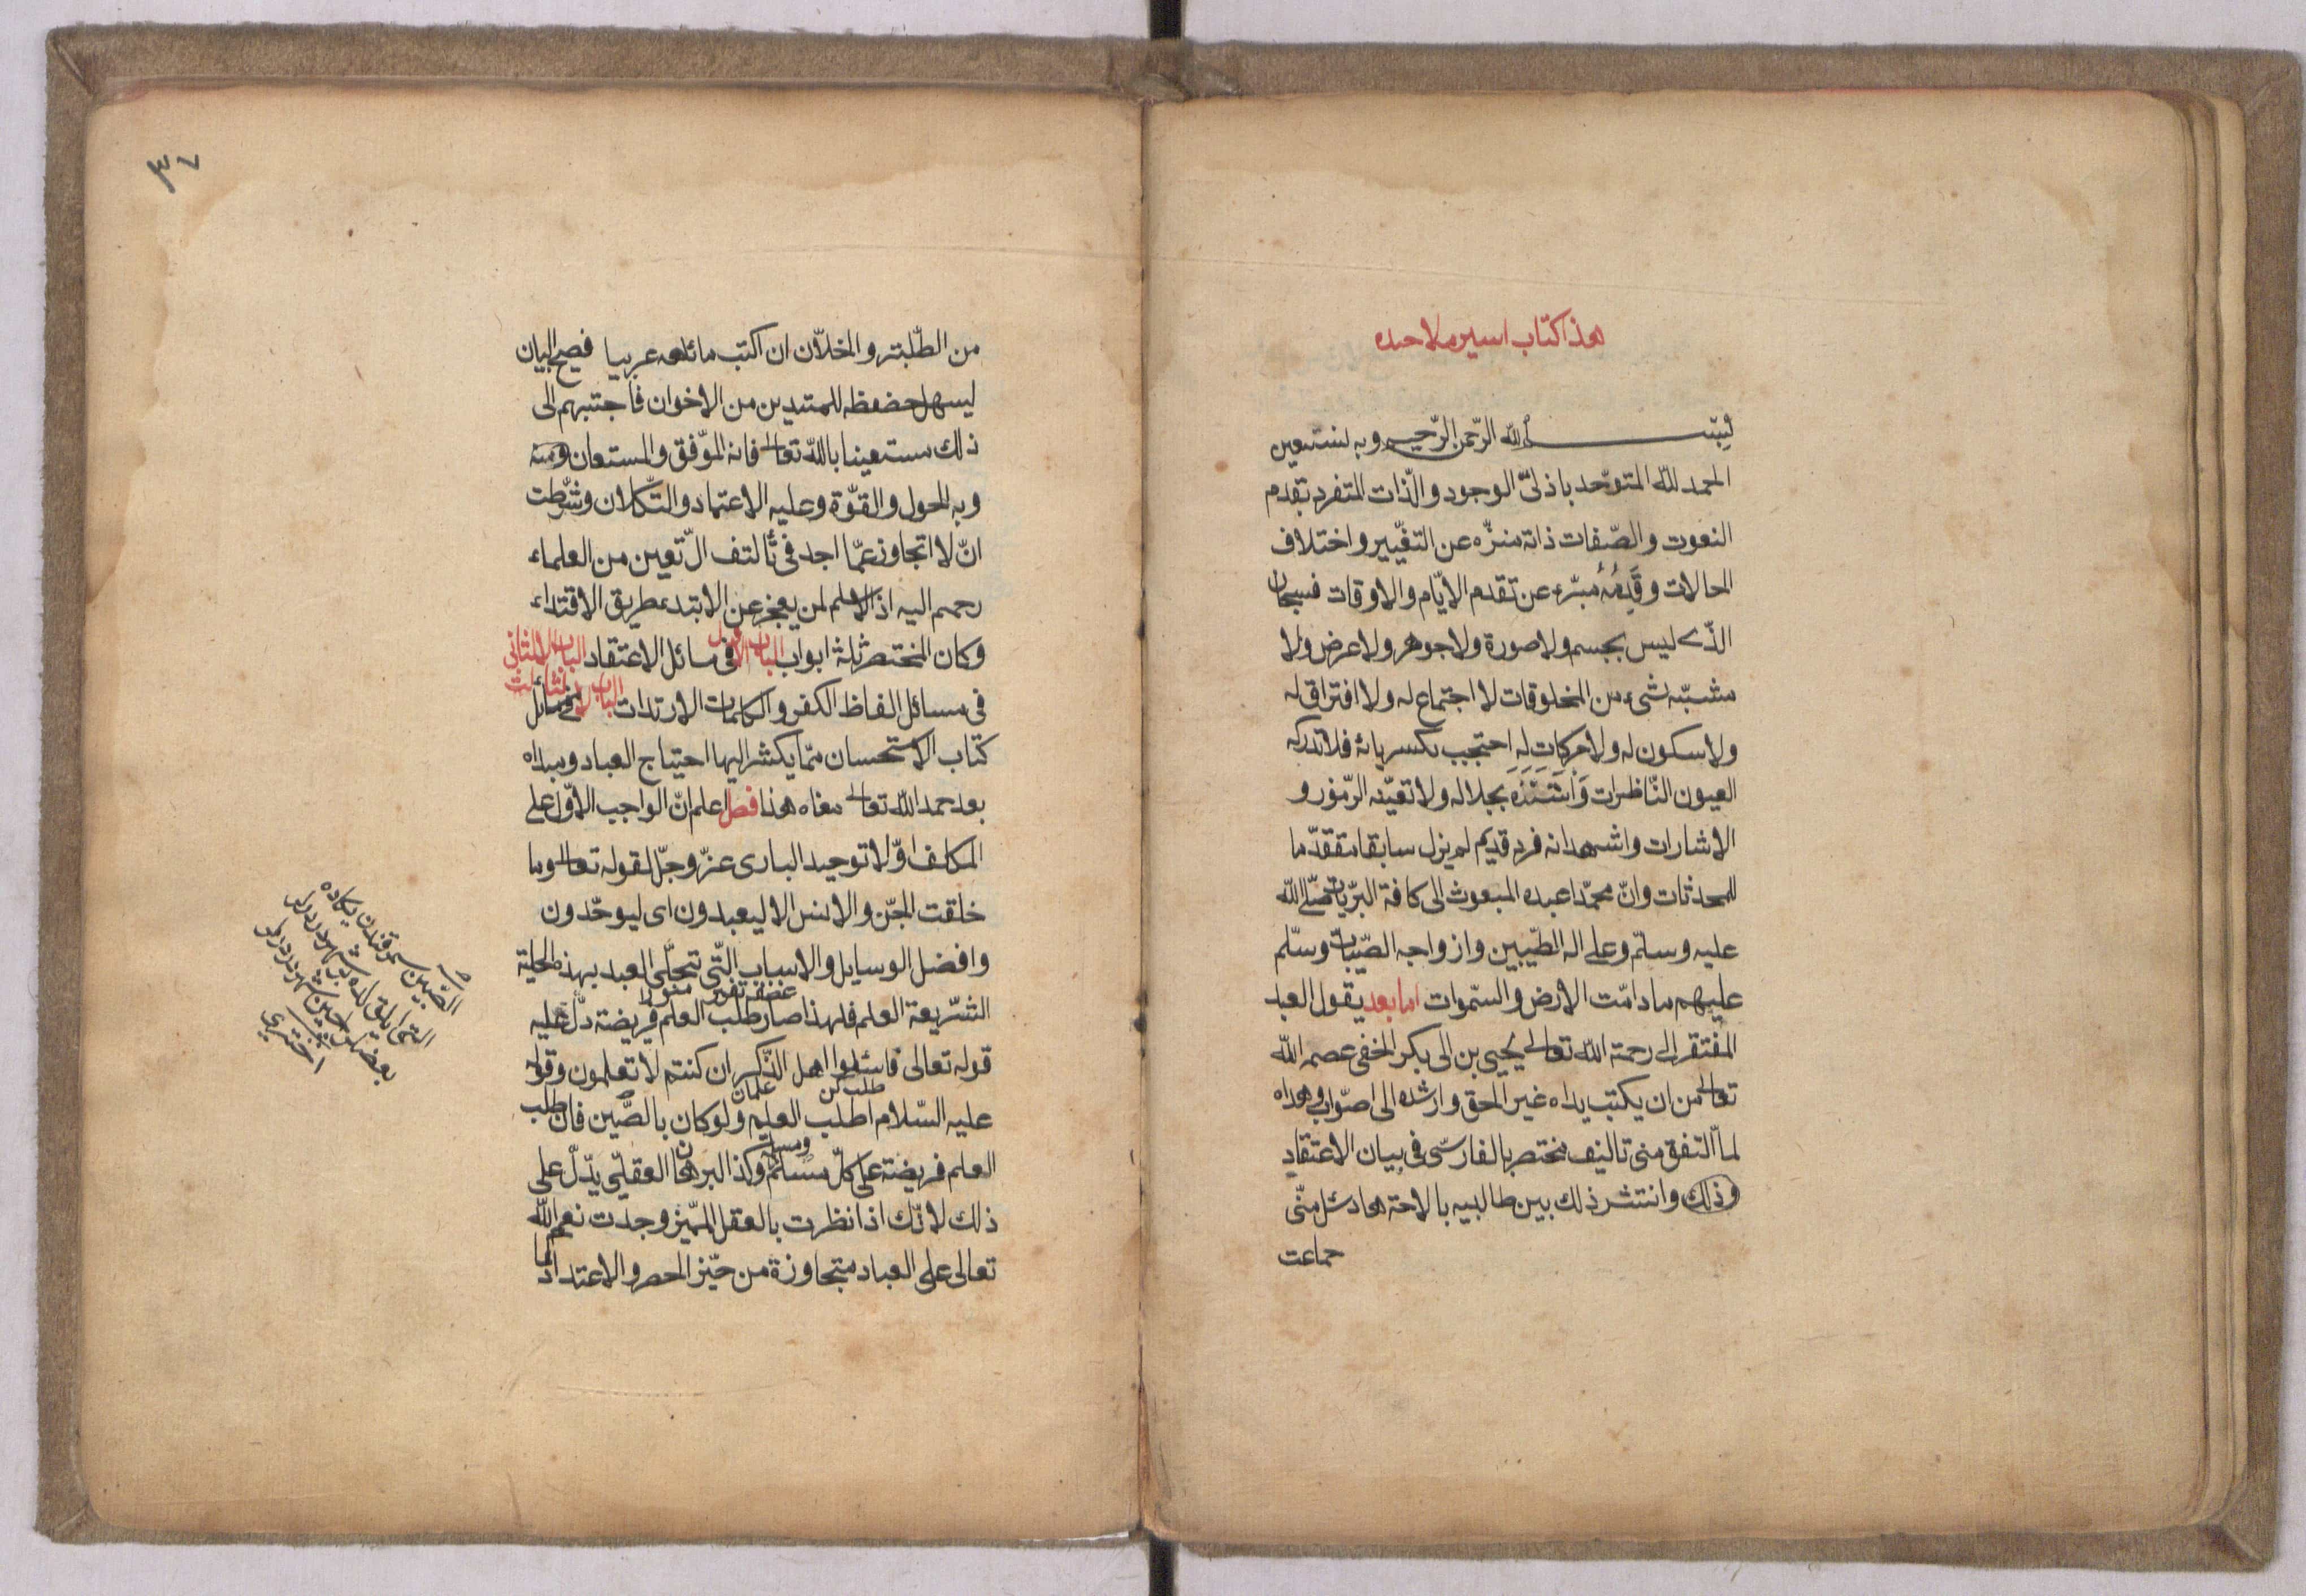 هذا كتاب اسير ملاحده
بسم الله الرّحمن الرّحيم وبه نستعين
الحمد لله المتوحّد باذلىّ الوجود والذّات المتفرد بقدم
النعوت والصّفات ذاته منزّه عن التغّيير واختلاف
الحالات وقَدِمُهُ مبرّء عن تقدم الايّام والاوقات فسبحان
الذّى ليس بجسم ولا صورة ولا جوهر ولا عرض ولا
مشبّه شىء من المخلوقات لا اجتماع له ولا افتراق له
ولا سكون له ولا حركات له احتجب بكبريائه فلا تدركه
العيون النّاظرات بجلاله ولا تعيّنه الرّموز و
الاشارات واشهد انه فرد قديم لم يزل سابقا متقدّما
للمحدثات وانّ محمّدا عبده المبعوث الى كافة البرّيات صلّى الله
عليه وسلّم وعلى اله الطيّبين وازواجه الطّيبات وسلّم
عليهم ما دامت الارض والسّموات اما بعد يقول العبد
المفتقر الى رحمة الله تعالى يحيى بن ابى بكر الحنفى عصمه الله
تعالى من ان يكتب يداه غير الحق وارشده الى اصّواب وهداه
لماّ التفق منى تاليف مختصر بالفارسّى فى بيان الاعتقاد
وذلك وانتشر ذلك بين طالبيه منّى
جماعت
٣٧
من الطّلبة والخلاّن ان اكتب عربيا فصيح البيان
ليسهل حفظه للمبتدين من الاخوان فاجتبهم الى
ذلك مستعينا بالله تعالى فانه الموّفق والمستعان ومنه
وبه الحول والقوّة وعليه الاعتماد والتّكلان وشرطت
انّ لا اتجاوز عمّا اجد فى من العلماء
اذ لمن يعجز عن الابتدء طريق الاقتداء
وكان المختصر ثلثة ابواب الباب الاول فى مسائل الاعتقاد الباب الثانى
فى مسائل الفاظ الكفر والكلمات الارتدات الباب الثالث فى مسائل
كتاب الاستحسان ممّا يكثر اليها احتياج العباد ومبداه
بعد حمد الله تعالى هذا فصل اعلم انّ الواجب الاوّل على
المكلف اوّلا توحيد البارى عزّ وجلّ لقوله تعالى وما
خلقت الجنّ والانس الا ليعبدون اى ليوحّدون
وافضل الوسايل والاسباب الّتى تتحلّى العبد بهذه الحلية
الشّريعة العلم فلهذا صار طلب العلم فريضة دلّ عليه
قوله تعالى فاسئلوا اهل الذّكر ان كنتم لا تعلمون وقوله
عليه السّلام اطلب العلم ولو كان بالصّين فان طلب
العلم فريضة على كلّ مسلم ومسلمة وكذا البرهان العقلىّ يدّل على
ذلك لانّك اذا نظرت بالعقل المميّز وجدت نعم الله
تعالى على العباد متجاوزة من حيّز الحصر والاعتداد
الصّين سمرقندن
اختری